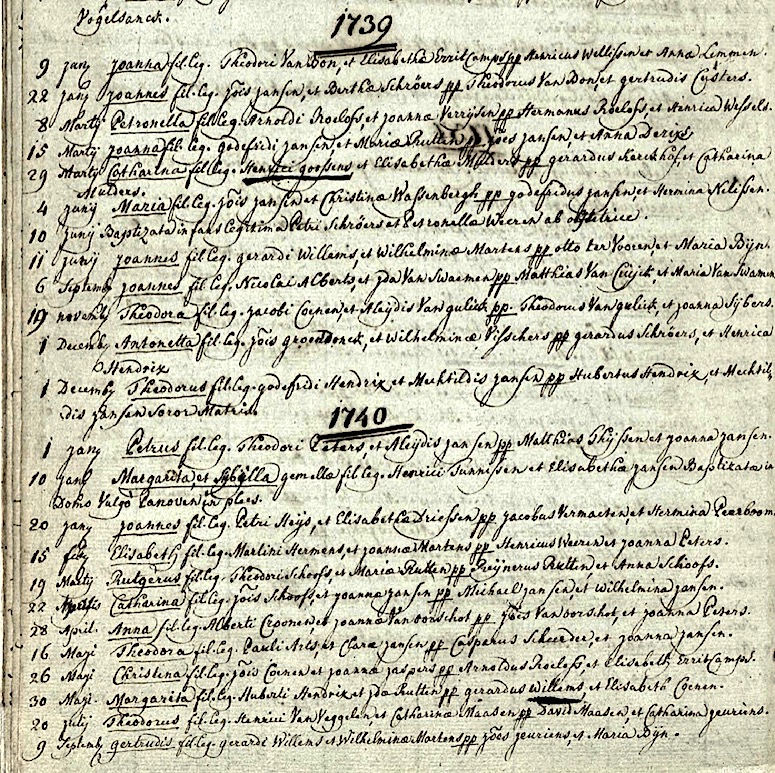 Vogelsanck.
1739
9 janij joanna fil. leg. Theodori Van Don, et Elisabethæ Errit Camps pp Henricus Willissen et Anna Lemmen.
22 janij joannes fil. leg. jois jansen, et Berthæ Schröers pp Theodorus Van Don, et gertrudis Custers.
8 Martij Petronella fil. leg. Arnoldi Roelofs, et joannæ Verrijsen pp Hermanus Roelofs, et Henrica Wessels.
15 Martij joanna fil. leg. godefridi jansen, et Mariæ Rutten pp joes jansen, et Anna Derixs
29 Martij Catharina fil. leg. Henrici goossens et Elisabethæ Mulders pp gerardus Kerckhof, et Catharina
Mulders.
4 junij Maria fil. leg. jois jansen et Christinæ Wassenbergh pp godefridus jansen et Hermina Nelissen.
10 junij Baptizata infans legitima Petri Schröers et Petronellæ Weeren ab obstetrice.
11 junij joannes fil. leg. gerardi Willems, et Wilhelminæ Martens pp otto ter Vooren, et Maria Bijn.
6 Septemb joannes fil. leg. Nicolai Alberts, et jda Van Swaemen pp Matthias Van Cuijck, et Maria Van Swamen
19 novemb Theodora fil. leg. jacobi Coenen, et Aleijdis Van gulick pp Theodorus Van gulick, et joanna Sijbers.
1 Decemb Antonetta fil. leg. jois groenDonck, et Wilhelminæ Visschers pp gerardus Schröers, et Henrica
Hendrix
1 Decemb Theodorus fil. leg. godefridi Hendrix et Mechtildis jansen pp Hubertus Hendrix, et Mechtil
dis jansen Soror Matris.
1740
1 janij Petrus fil. leg. Theodori Peters, et Aleijdis jansen pp Matthias Thijssen et joanna jansen.
10 janij Margarita et Sybilla gemellæ fil. leg. Henrici Tunnissen et Elisabethæ jansen Baptizatæ in
Domo Vulgò Panoven in plees.
20 janij joannes fil. leg. Petri Heijs, et Elisabethæ Driessen pp jacobus Vermaeten, et Hermina Peereboom
15 Elisabeth fil. leg. Martini Hermens, et joannæ Martens pp Henricus Weeren et joanna Peters.
19 Martij Rutgerus fil. leg. Theodori Schoofs, et Mariæ Rutten pp Reijnerus Rutten et Anna Schoofs.
22 Aprilis Catharina fil. leg. jois Schoofs, et joannæ jansen pp Michael jansen, et Wilhelmina jansen.
28 April. Anna fil. leg. Alberti Croonen, et joannæ Van oorschot pp joes Van oorshot, et joanna Peters.
16 Maji Theodora fil. leg. Pauli Arts, et Claræ jansen pp Casperus Scheerder, et joanna jansen.
26 Maji Christina fil. leg. jois Coenen et joannæ jaspers pp Arnoldus Roelofs, et Elisabeth Errit Camps.
30 Maji. Margarita fil. leg. Huberti Hendrix et jda Rutten pp gerardus willems, et Elisabeth Coenen.
20 julij Theodorus fil. leg. Henrici Van Veggelen, et Catharinæ Maasen pp David Maasen, et Catharina jeuriens.
9 Septemb gertrudis fil. leg. gerardi Willems et Wilhelminæ Martens pp joes jeuriens, et Maria Bijn.